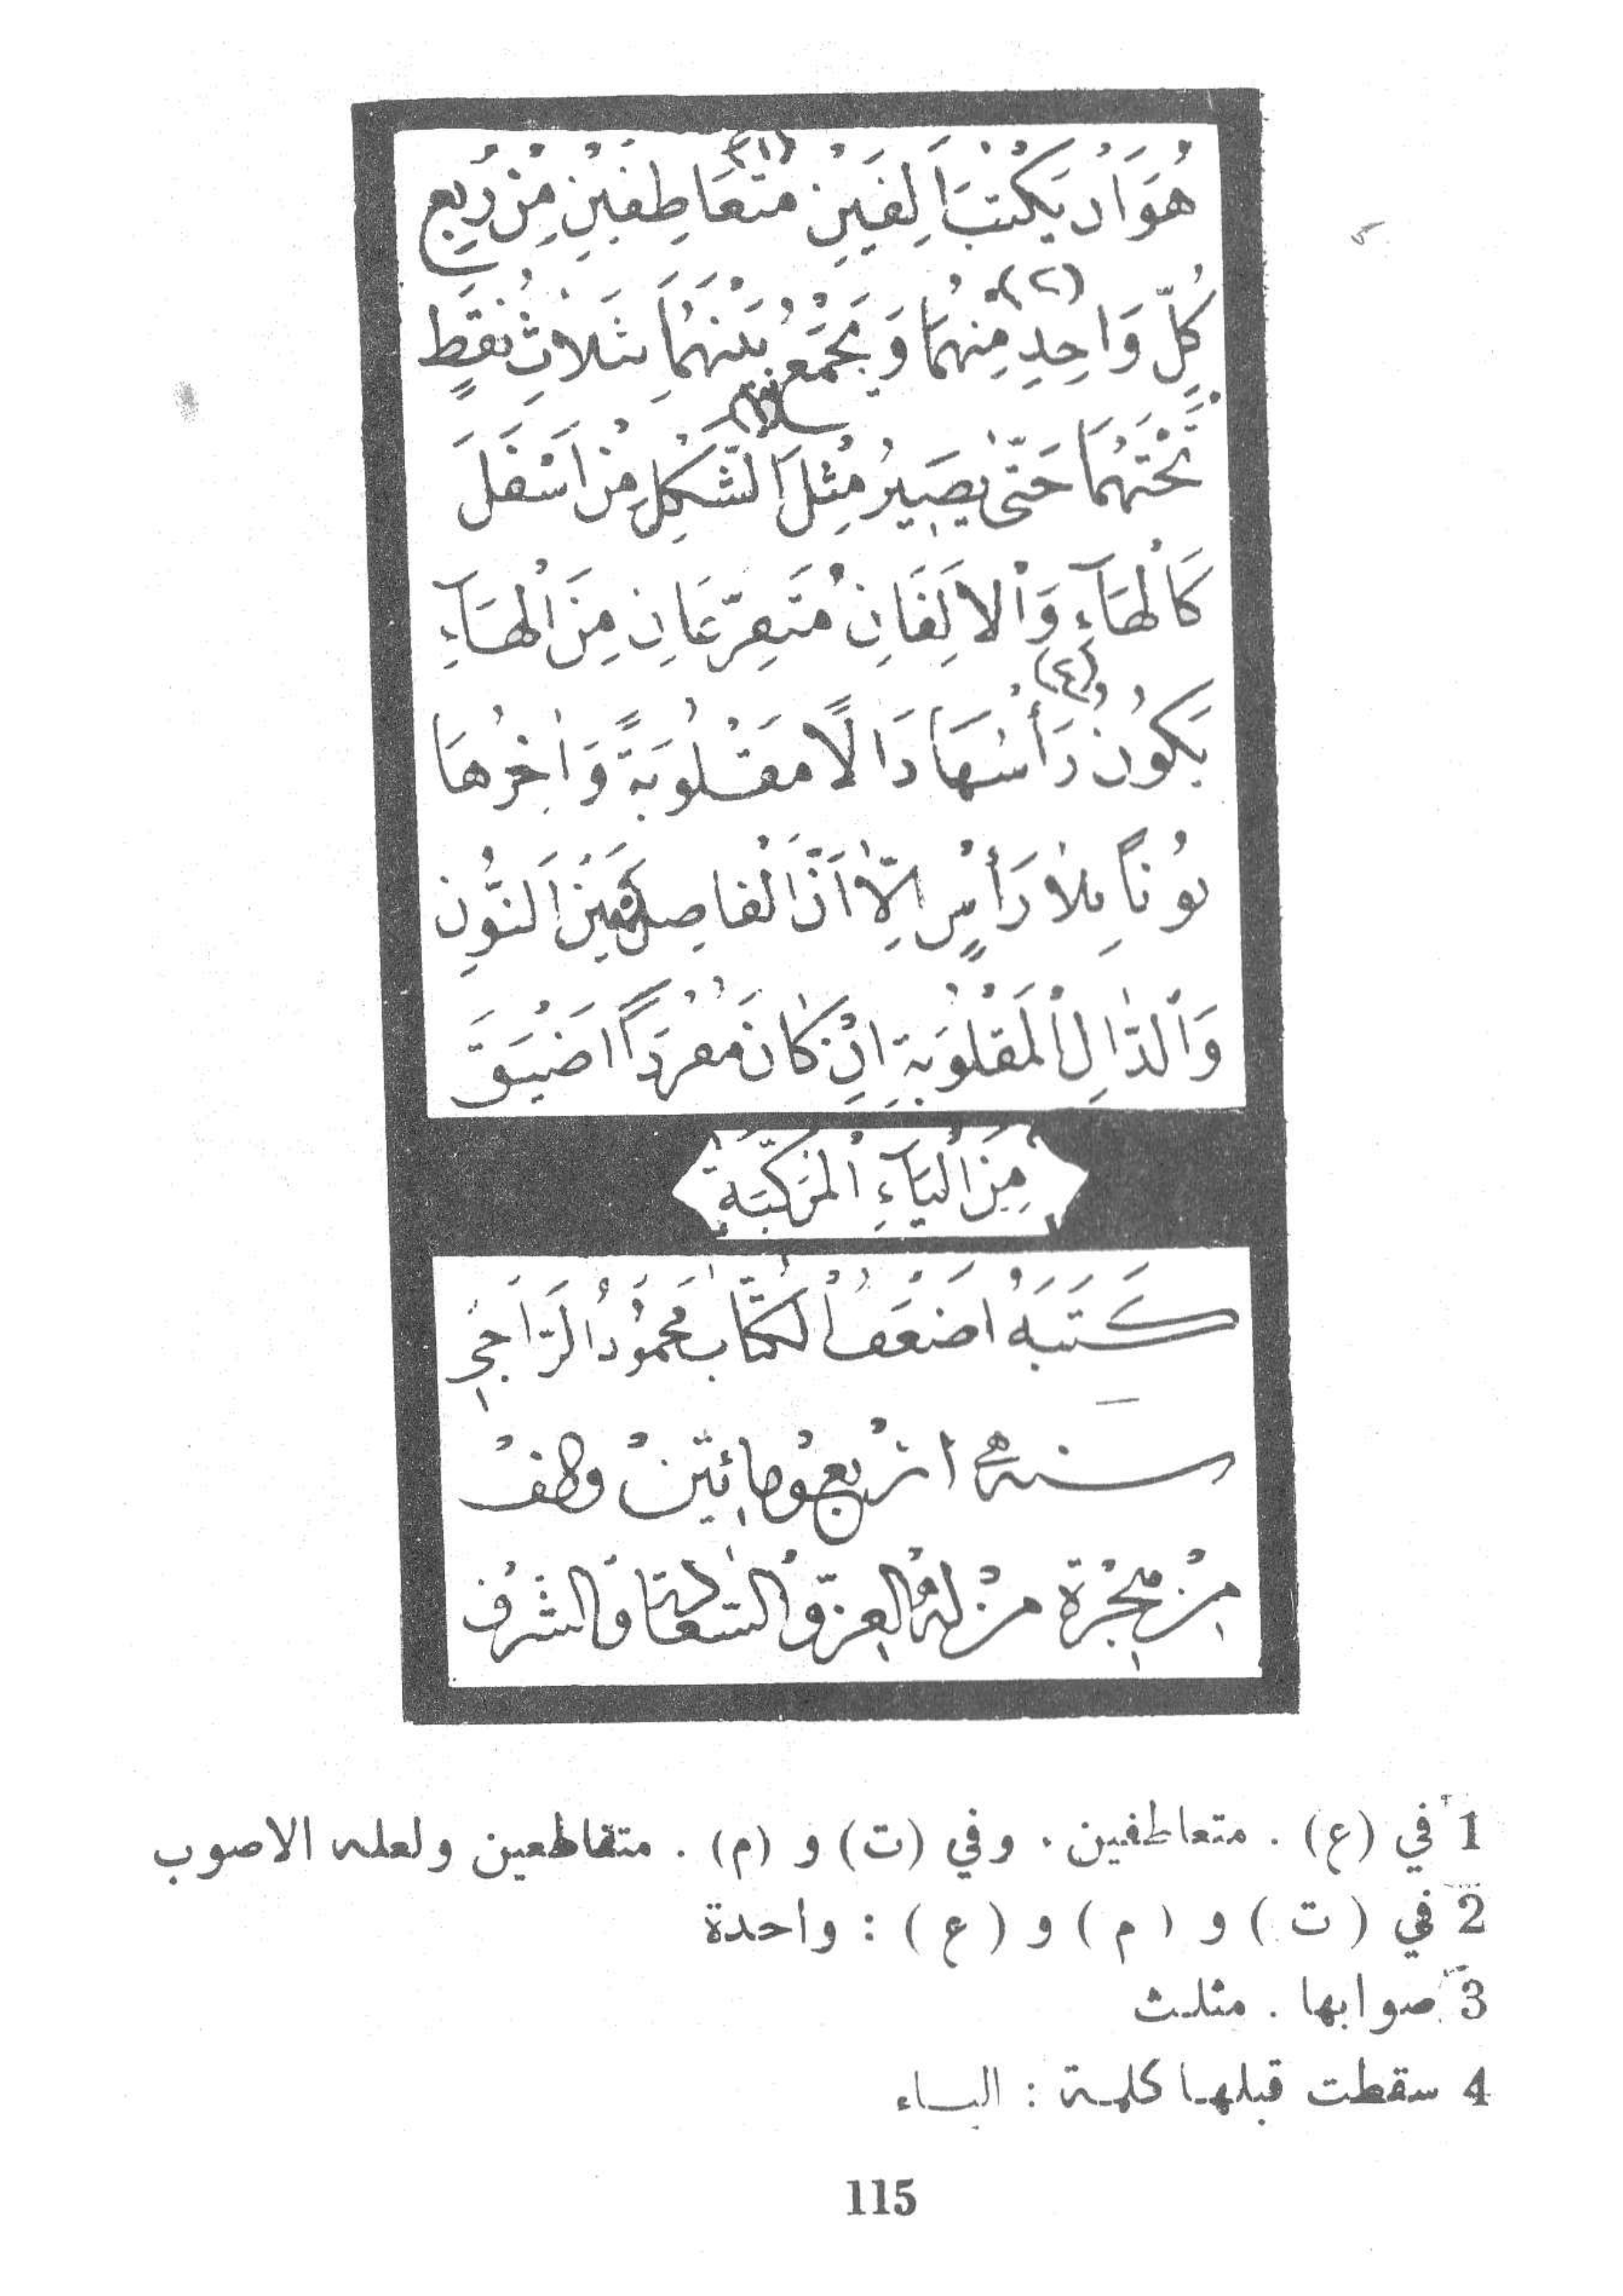 هُوَ اَنْ يَكْتُبَ اَلِفَيْنِ (١) مُتَعَاطِفَيْنِ مِنْ رُبِعِ
كُلِّ وَاحِدٍ (٢) مِنْهُمَا وَيَجْمَعُ بَيْنَهُمَا بِثَلَاثِ نُقَطٍ
تَحْتَهُمَا حَتّٰى يَصِيرُ مِثْلَ (٣) الشَّكْلِ مِنْ اَسْفَلَ
كَالْهَآءِ وَالْاَلِفَانِ مُتَفَرِّعَانِ مِنَ الْهَآءِ
يَكُونُ (٤) رَأْسُهَا دَالًا مَقْلُوبَةً وَاٰخِرُهَا
نُونًا بِلَا رَأْسٍ اِلَّا اَنَّ الْفَاصِلَ بَيْنَ النُّونِ
وَالدَّالِ الْمَقْلُوبَةِ اِنْ كَانَ مُفْرَدًا اَضْيَقَ
مِنَ الْيَآءِ الْمُرَكَّبَةِ
كَتَبَهُ اَضْعَفُ الْكُتَّابِ مَحْمُودُ الرَّاجِي
سنة اربع ومائتين والف
مِنْ هِجْرَة مَنْ لَهُ الْعِزُّ وَالسَّعَادَة وَالشَّرَفْ
1 في (ع) . متعاطفين . وفي (ت) و (م) . متقاطعين ولعله الاصوب
2 في (ت) و (م) و (ع) : واحدة
3 صوابها . مثلث
4 سقطت قبلها كلمة : الياء
115